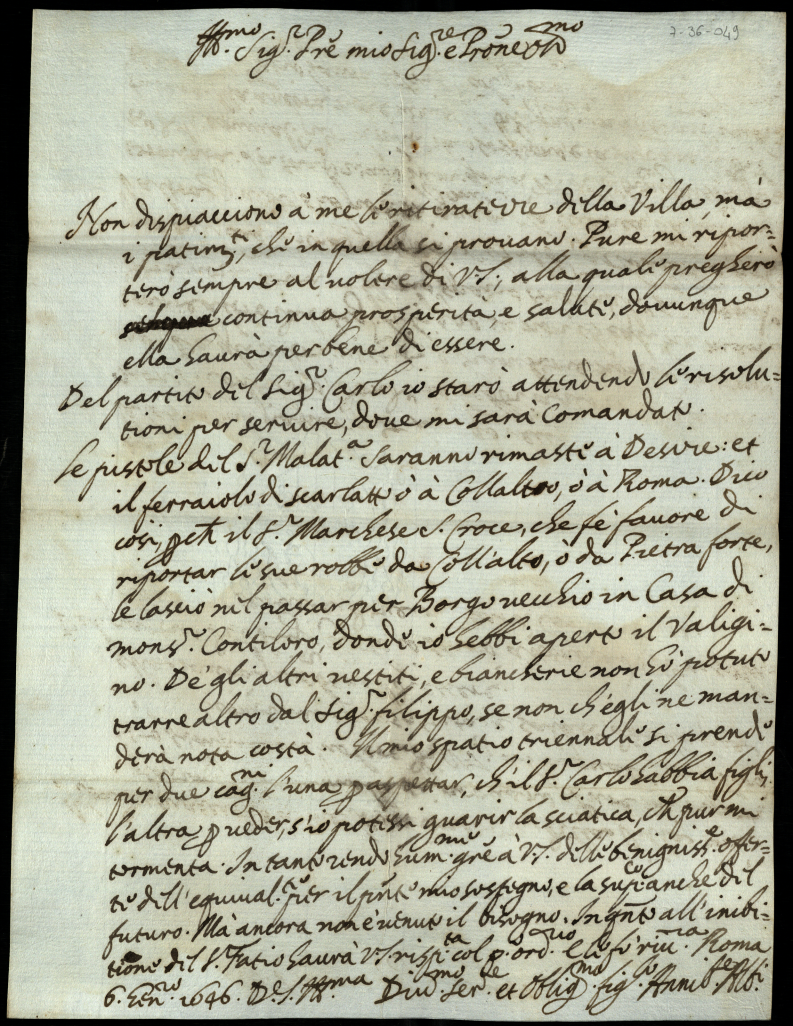 7-36-049
Ill.mo Sig.r P̃re mio Sig.re e Pr̃one
Non dispiacciono à me le ritiratezze della Villa, mà
i patim.ti, che in quella si provano. Pure mi ripor=
terò sempre al volere di V.S., alla quale pregherò
continua prosperità, e salute, dovunque
ella haurà per bene di essere.
Del partito del Sig.r Carlo io starò attendendo le risolu=
tioni per servire, dove mi sarà comandato.
Le pistole del S.r Malat.a saranno rimaste à : et
il ferraiolo di scarlatto ò à Collalto, ò à Roma. Dico
così, pch̃ il S.r Marchese S. Croce, che fe' favore di
riportar le sue robbe da Coll'alto, ò da Pietra forte,
le lasciò nel passar per Borgo vecchio in Casa di
mons.r Contiloro, donde io hebbi aperto il Valigi=
no. De gli altri vestiti, e biancherie non hò potuto
trarre altro dal Sig.r filippo, se non ch'egli ne man=
derà nota costà. Il mio spatio triennale si prende
per due cag.ni l'una p aspettar, ch'il S.r Carlo habbia figli,
l'altra p veder, s'io potessi guarir la sciatica, ch̃ pur mi
tormenta. In tanto rendo hum.me gr̃e à V.S. delle benigniss.e offer=
te dell'equival.te per il pñte mio sostegno, e la sup.co anche del
futuro. Mà ancora non è venuto il bisogno. In qñto all'inibi=
tione del S.r Fatio haurà V.S. col p.o ord.rio E le fò riu.za Roma
6. Gen.ro 1646. De V.S. Ill.ma
Div.mo ser.re et Oblig.mo fig.lo Annib.le Alb.i